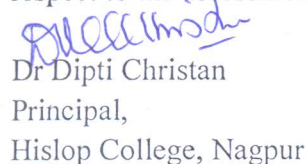 Dr Dipti Christan
Principal,
Hislop College, Nagpur